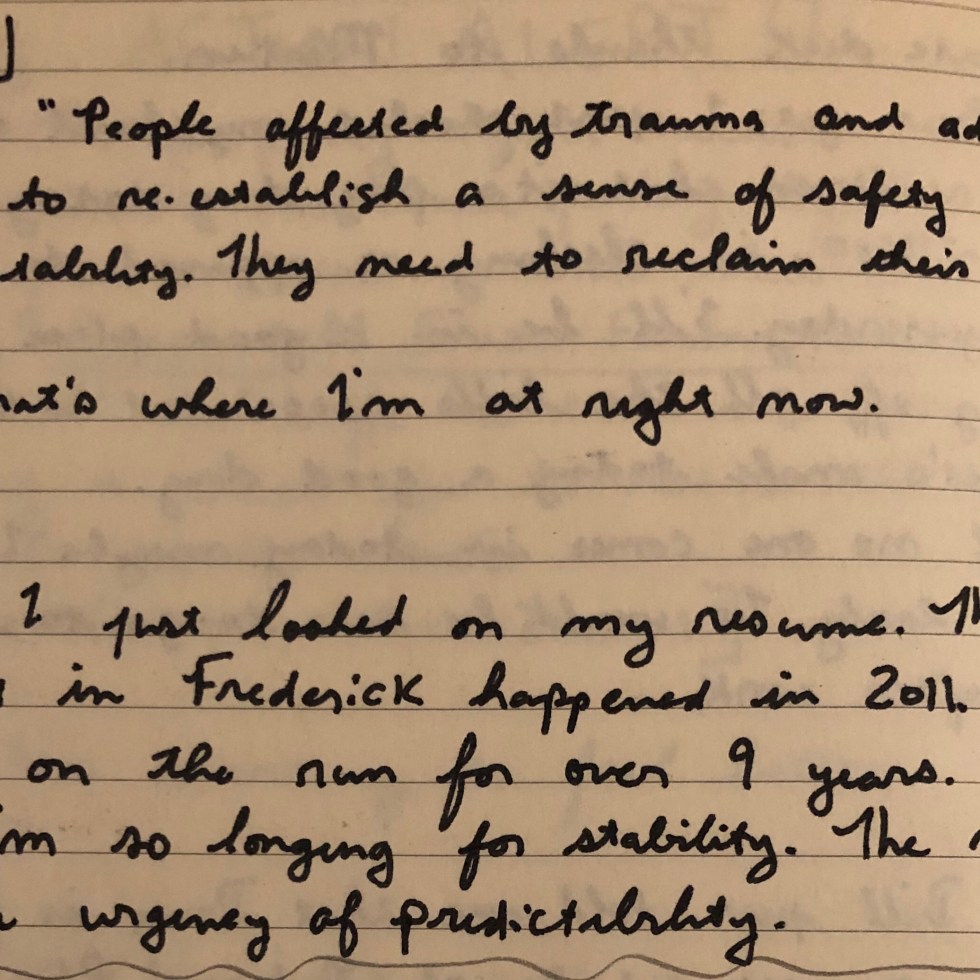 "People affected by trauma and ad
to re-establish a sense of safety
tability. They need to reclaim their
hat's where I'm at right now.
I just looked on my resume. Th
in Frederick happened in 2011.
on the run for over 9 years.
'm so longing for stability. The
urgency of predictability.